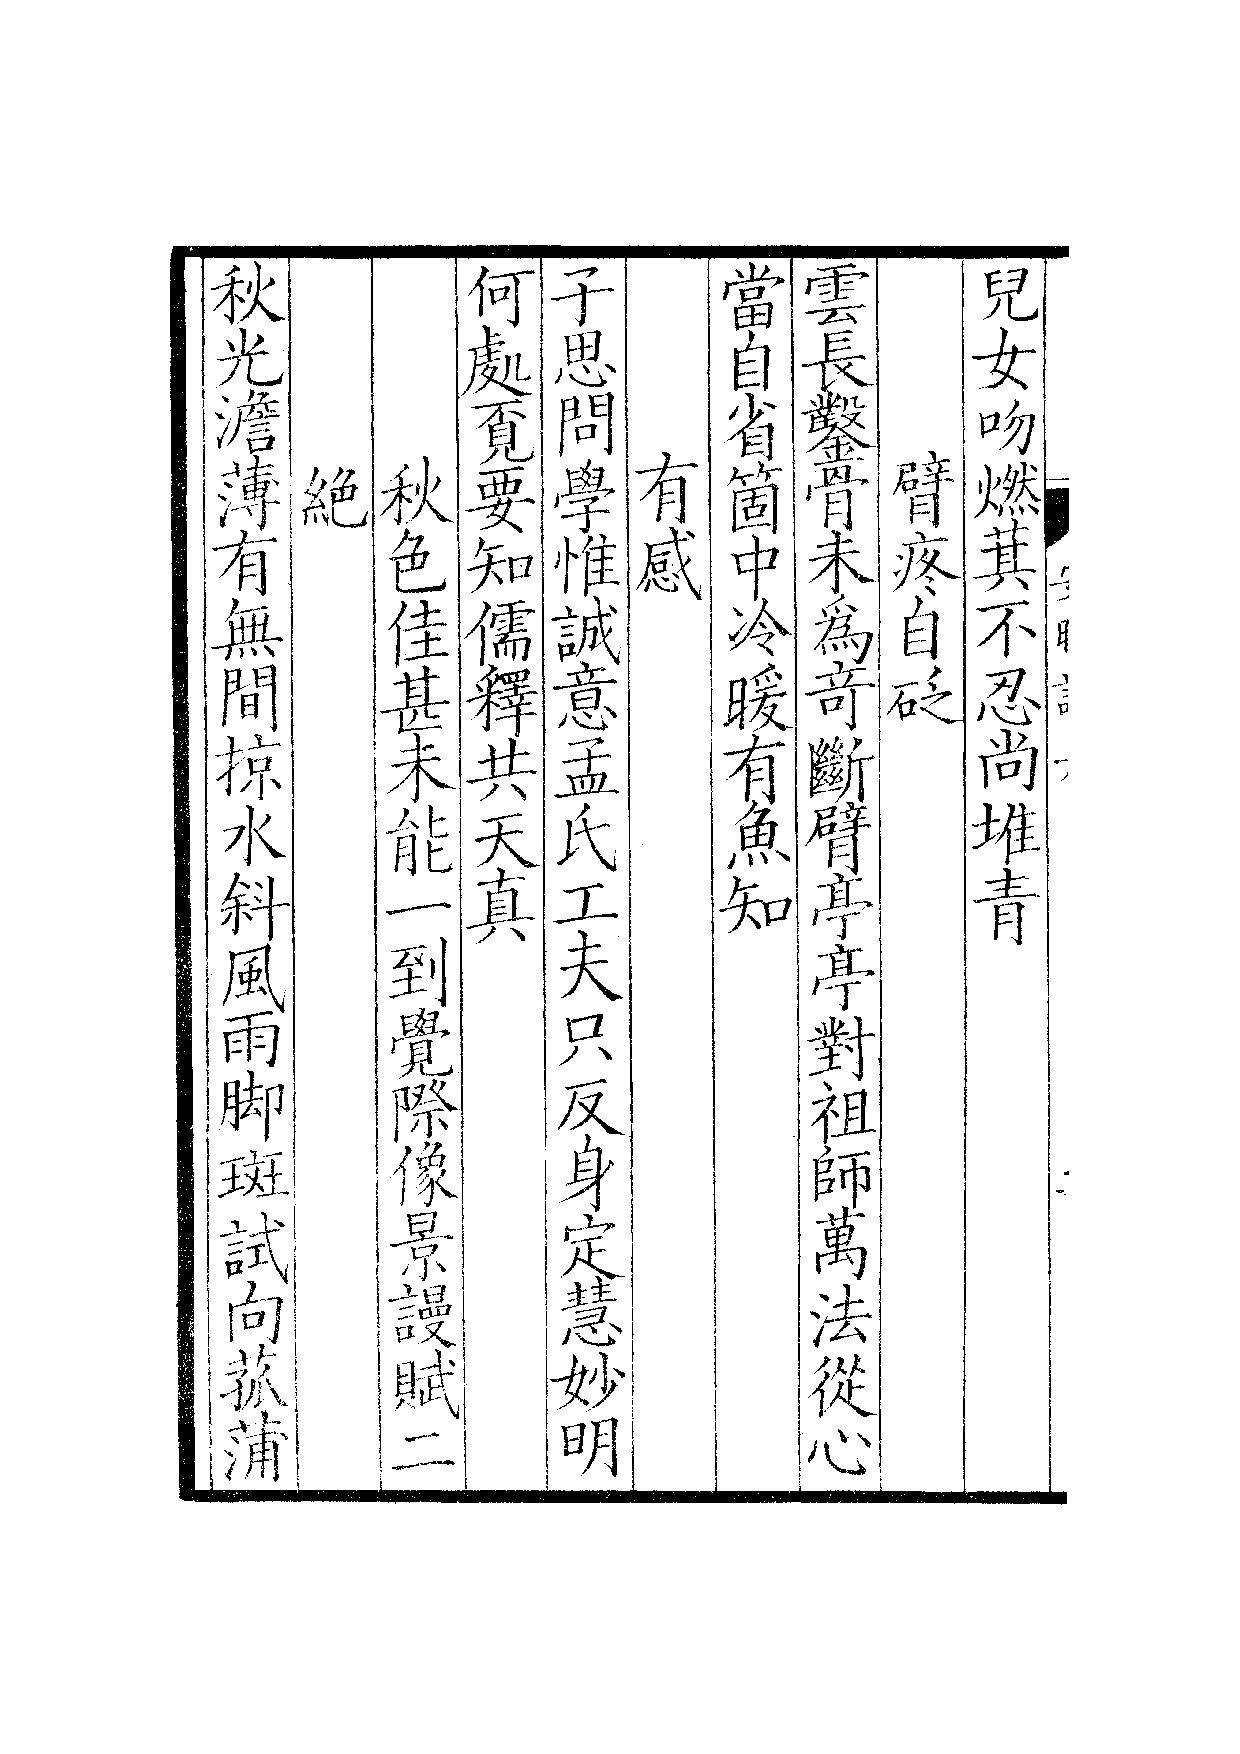 兒女吻燃萁不忍尚堆青
臂疼自砭
雲長鑿骨未為竒斷臂亭亭對祖師萬法從心
當自省箇中冷暖有魚知
有感
子思問學惟誠意孟氏工夫只反身定慧妙明
何處覔要知儒釋共天真
秋色佳甚未能一到覺際像景謾賦二
絶
秋光澹薄有無間掠水斜風雨脚斑試向菰蒲